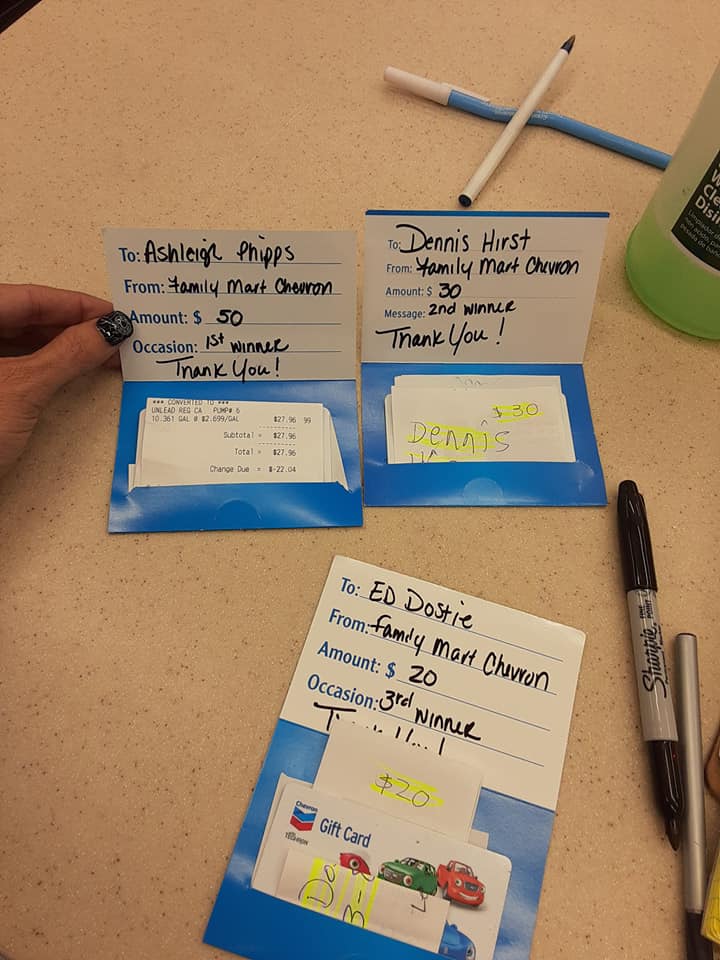 To: Ashleigh Phipps
From: Family Mart Chevron
Amount: $ 50
Occasion: 1st winner
Thank You!
*** CONVERTED TO ***
UNLEAD REG CA PUMP# 6
10.361 GAL @ $2.699/GAL $27.96 99
Subtotal = $27.96
Total = $27.96
Change Due = $-22.04
To: Dennis Hirst
From: Family Mart Chevron
Amount: $ 30
Message: 2nd winner
Thank You!
$30
Dennis
To: ED Dostie
From: Family Mart Chevron
Amount: $ 20
Occasion: 3rd winner
$20
Chevron
TECHRON
Gift Card
Do
Sharpie
FINE POINT